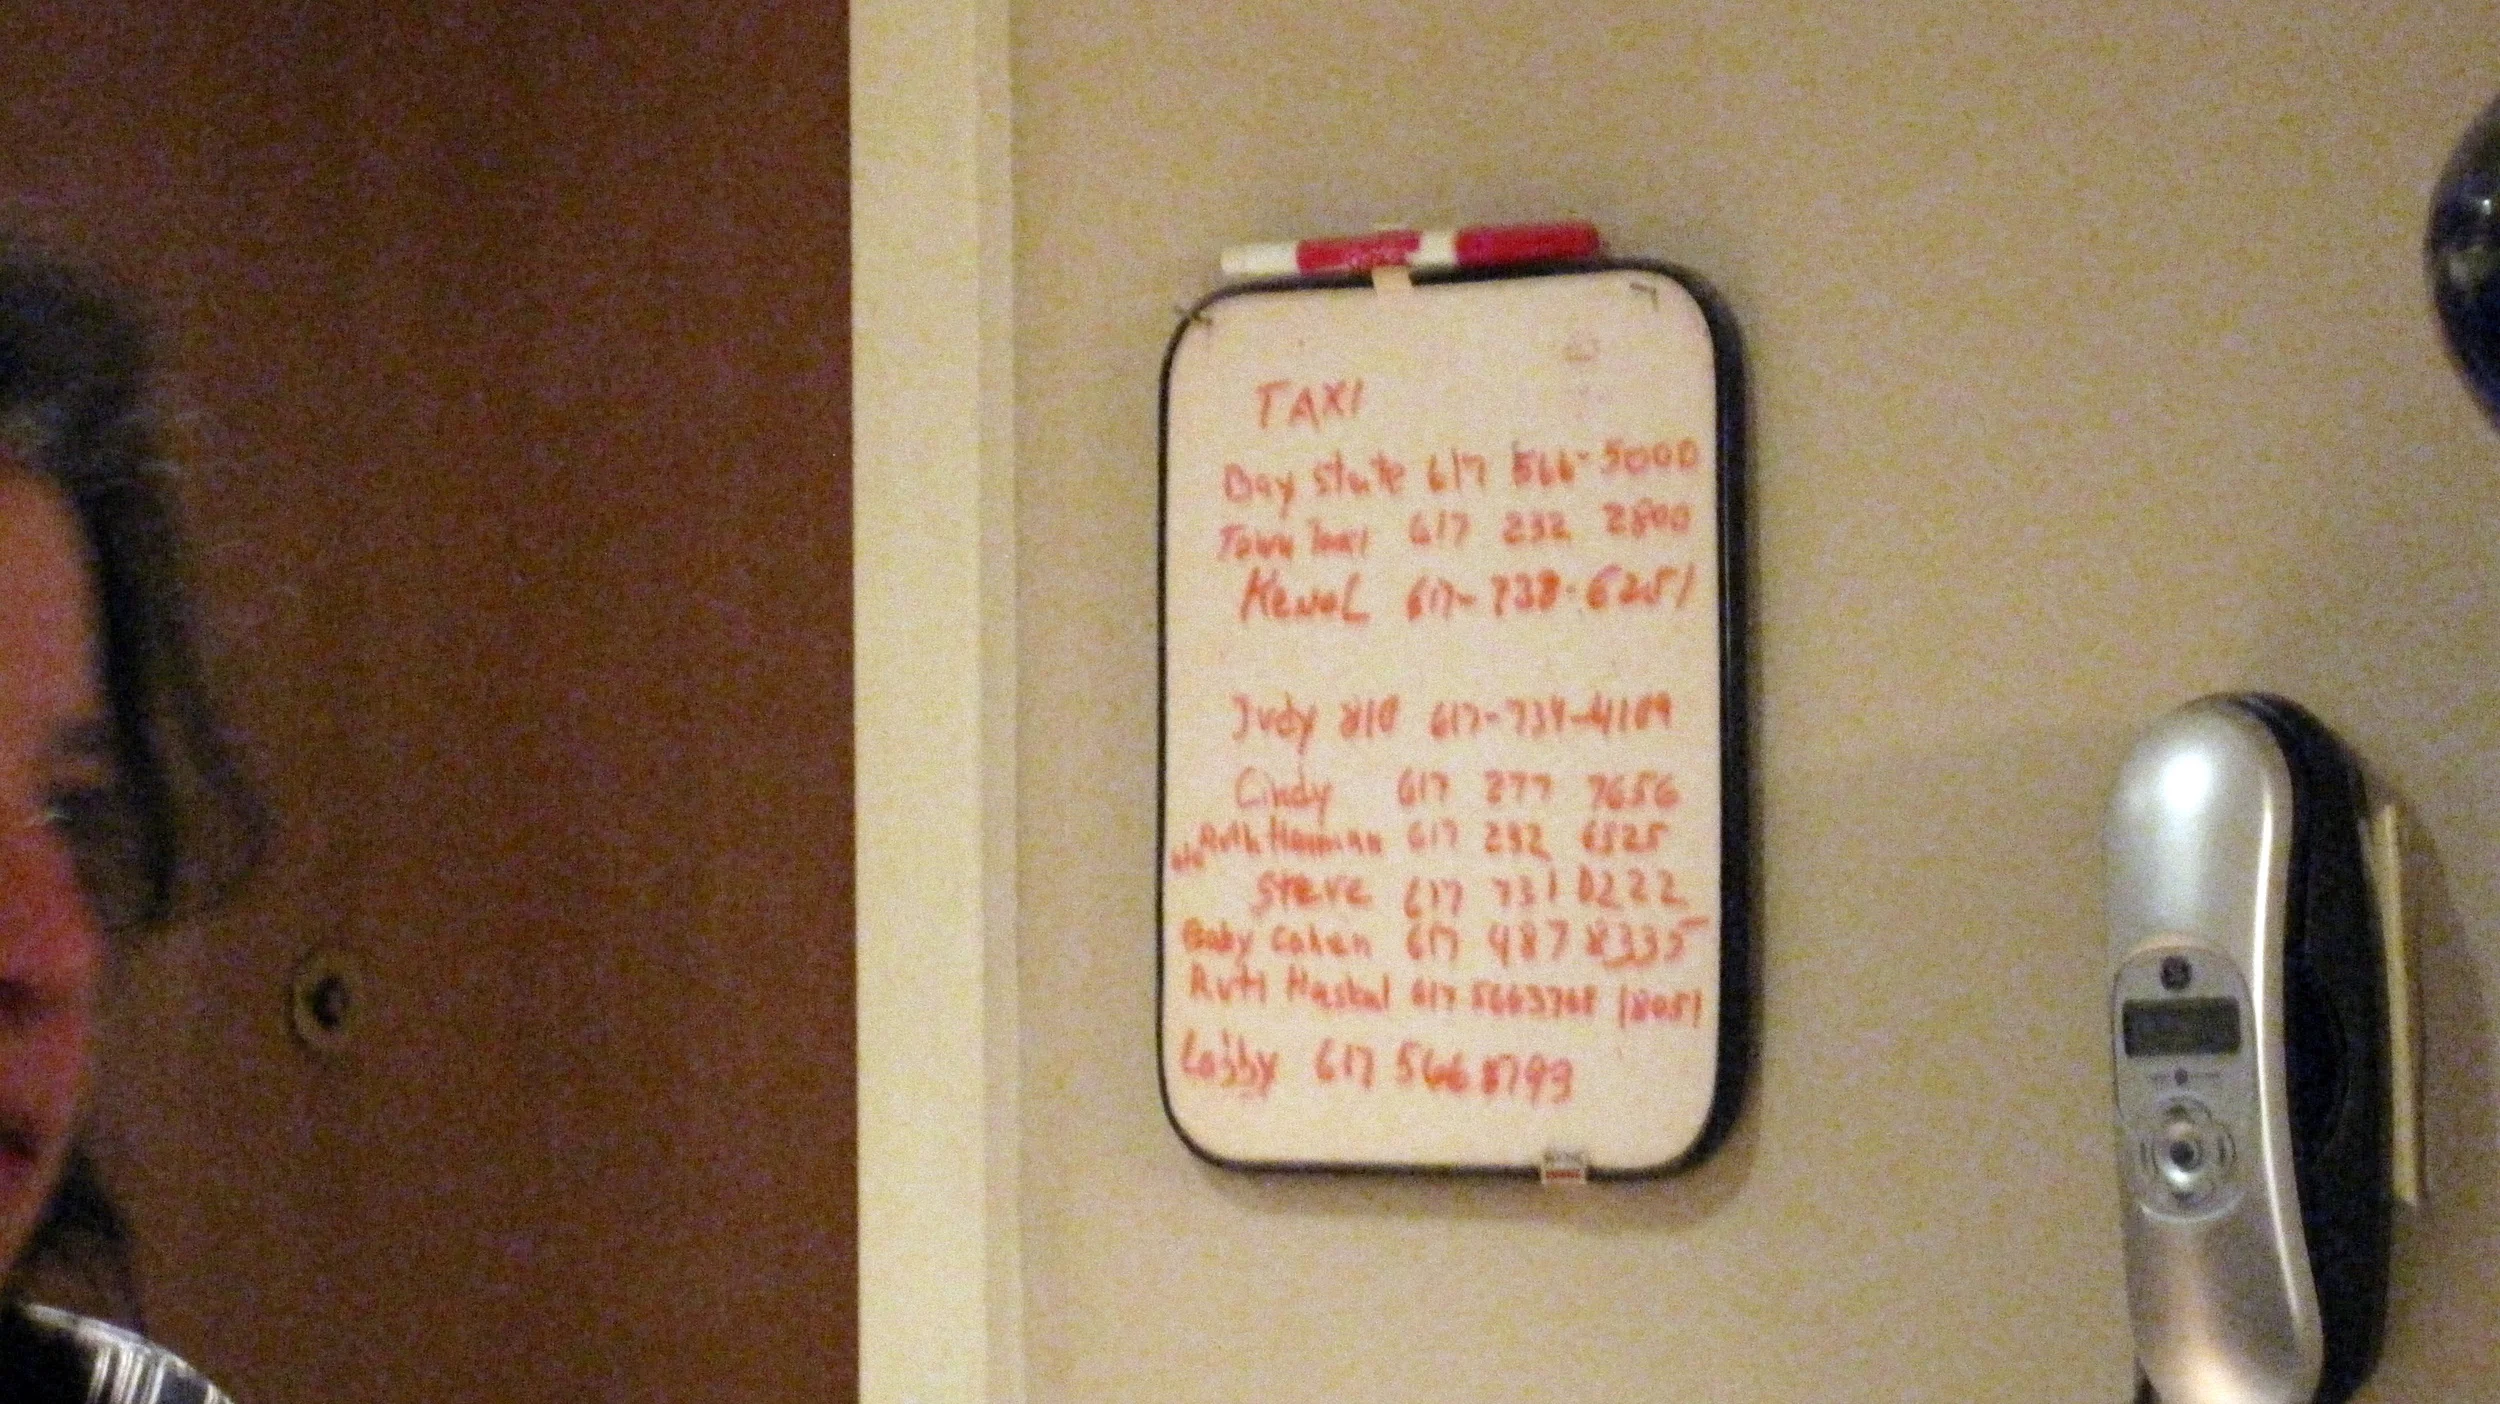 TAXI
Bay State 617 566-5000
Town Taxi 617 232 2800
KenoL 617-738-6251
Judy 810 617-734-4109
Cindy 617 277 7656
Ruth 617 232 6525
Steve 617 731 0222
Baby Cohen 617 487 8335
Ruti 617 5663768
Lobby 617 566 8799